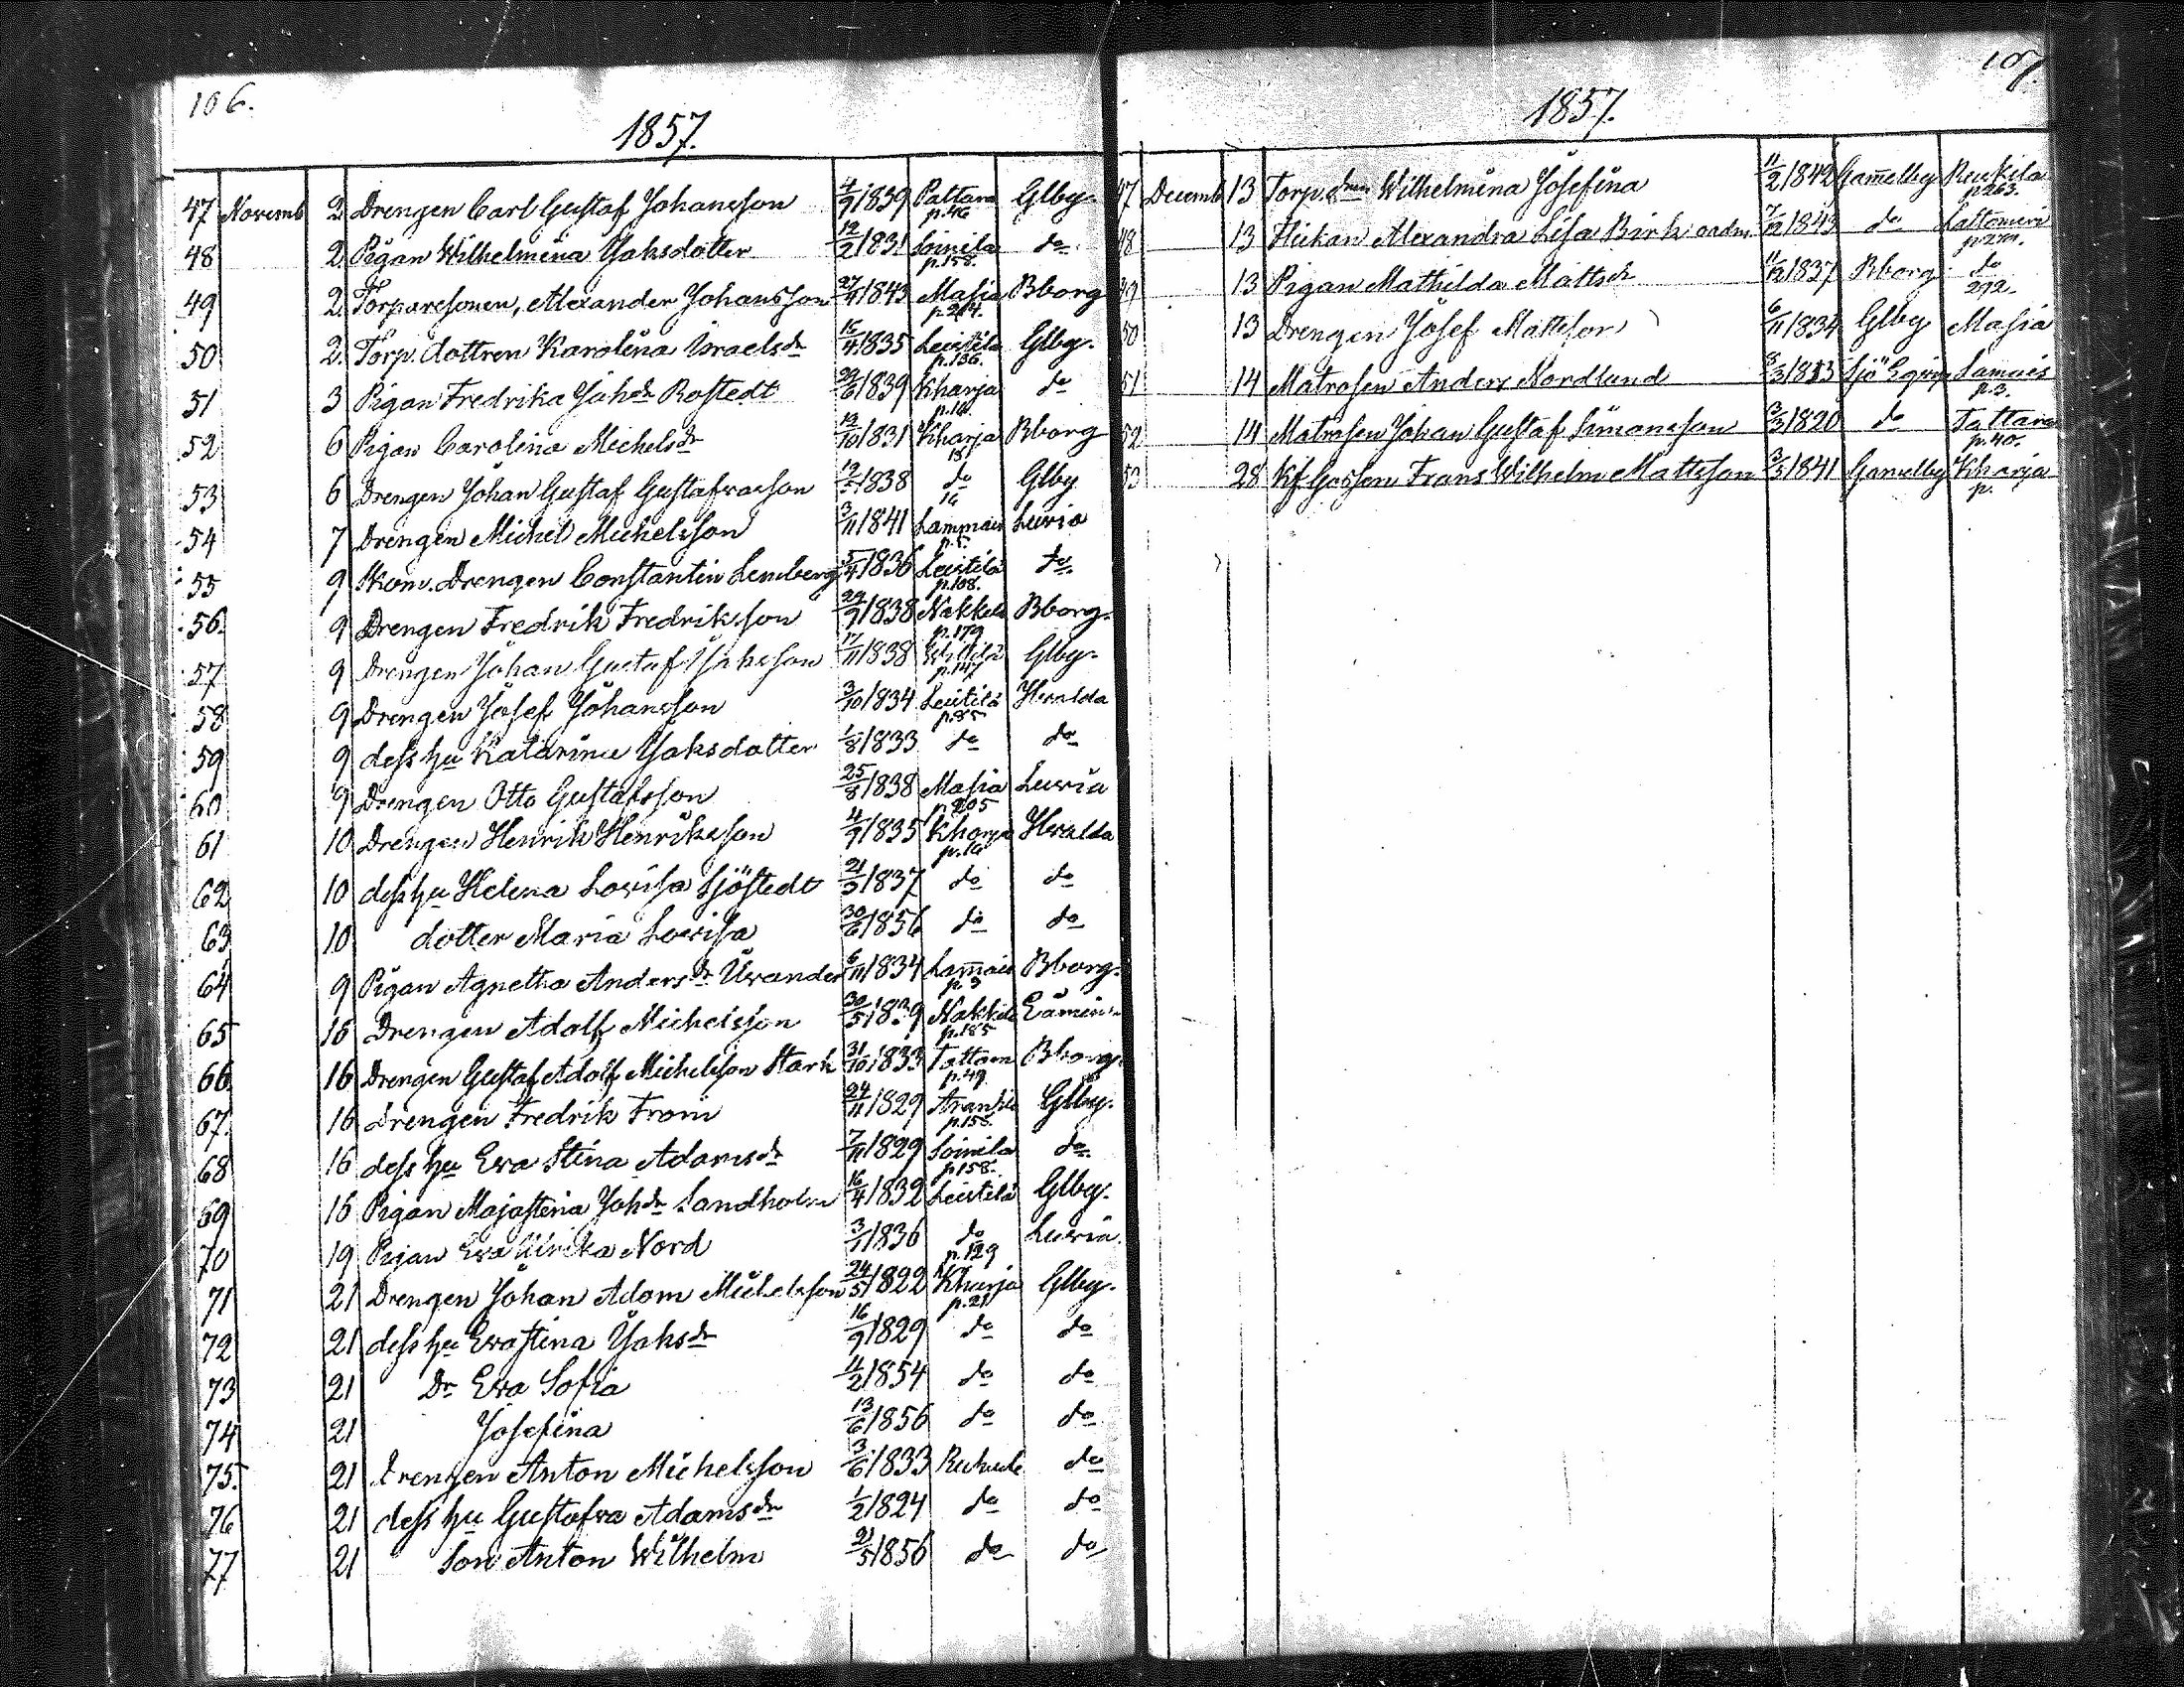 106.
1857.
47 Novemb 2 Drengen Carl Gustaf Johansson 4/9 1839 Pattara p.46 Glby.
48 2 Pigan Wilhelmina Jaksdotter 12/2 1831 Soinila p.158. do
49 2 Torparesonen, Alexander Johansson 27/9 1843 Masia p.214. Bborg
50 2. Torp. dottren Karolina Israelsdr 16/4 1835 Leistilä p.136. Glby.
51 3 Pigan Fredrika Johdr Rostedt 29/6 1839 Kharja p.10. do
52 6 Pigan Carolina Michelsdr 12/10 1831 Kharja 18 Bborg
53 6 Drengen Johan Gustaf Gustafvasson 1838 do 16 Glby
54 7 Drengen Michel Michelsson 3/11 1841 Lammais p.5. Luvia
55 9 Skom. Drengen Constantin Lemberg 5/4 1836 Leistilä p.108. do.
56. 9 Drengen Fredrik Fredriksson 29/9 1838 Nakkila p.179 Bborg.
57 9 Drengen Johan Gustaf Isaksson 17/11 1838 p.147 Glby.
58 9 Drengen Josef Johansson 3/10 1834 Leistilä p.85 Hvalda
59 9 dess hu Katarina Jaksdotter 1/8 1833 do do
60 9 Drengen Otto Gustafsson 25/8 1838 Masia p.205 Luvia
61 10 Drengen Henrik Henriksson 4/9 1835 Kharja p.16 Hvalda
62 10 dess hu Helena Lovisa Sjöstedt 21/3 1837 do do
63 10 dotter Maria Lovisa 30/6 1856 do do
64 9 Pigan Agnetha Andersdr Uvander 6/11 1834 Lam̄ais p.3 Bborg.
65 16 Drengen Adolf Michelsson 30/5 Nakkila p.185
66 16 Drengen Gustaf Adolf Michelsson Stark 31/10 1833 Tattara p.49. Bborg.
67. 16 Drengen Fredrik From 24/11 1829 p.158. Glby.
68 16 dess hu Eva Stina Adamsdr 7/11 1829 Soinila p.158. do.
69 16 Pigan Majastina Johdr Sandholm 16/4 1832 Leistilä Glby.
70 19 Pigan Eva Ulrika Nord 3/1 1836 do p.129 Luvia.
71 21 Drengen Johan Adam Michelsson 24/5 1822 Kharja p.21 Glby.
72 21 dess hu Evastina Jaksdr 16/9 1829 do do
73 21 Dr Eva Sofia 4/2 1854 do do
74 21 Josefina 13/6 1856 do do
75. 21 Drengen Anton Michelsson 3/6 1833 do
76 21 dess hu Gustafva Adamsdr 1/2 1824 do do
77 21 Son Anton Wilhelm 21/5 1856 do do
107.
1857.
47 Decemb 13 Torp. Wilhelmina Josefina 11/2 1842 Gam̄elby Reukila p.263.
48 13 Flickan Alexandra Lisa Birk 7/12 1843 do Lattomeri
49 13 Pigan Mathilda Mattsdr 11/12 1837 Bborg do 292.
50 13 Drengen Josef Mattsson 6/11 1834 Glby Masia
51 14 Matrosen Anders Nordlund 8/3 Sjö Lamais p.3.
52 14 Matrosen Johan Gustaf Simonsson 3/3 1820 do Tattara p.40.
53 28 Gossen Frans Wilhelm Mattsson 3/5 1841 Gamelby Kharja p.